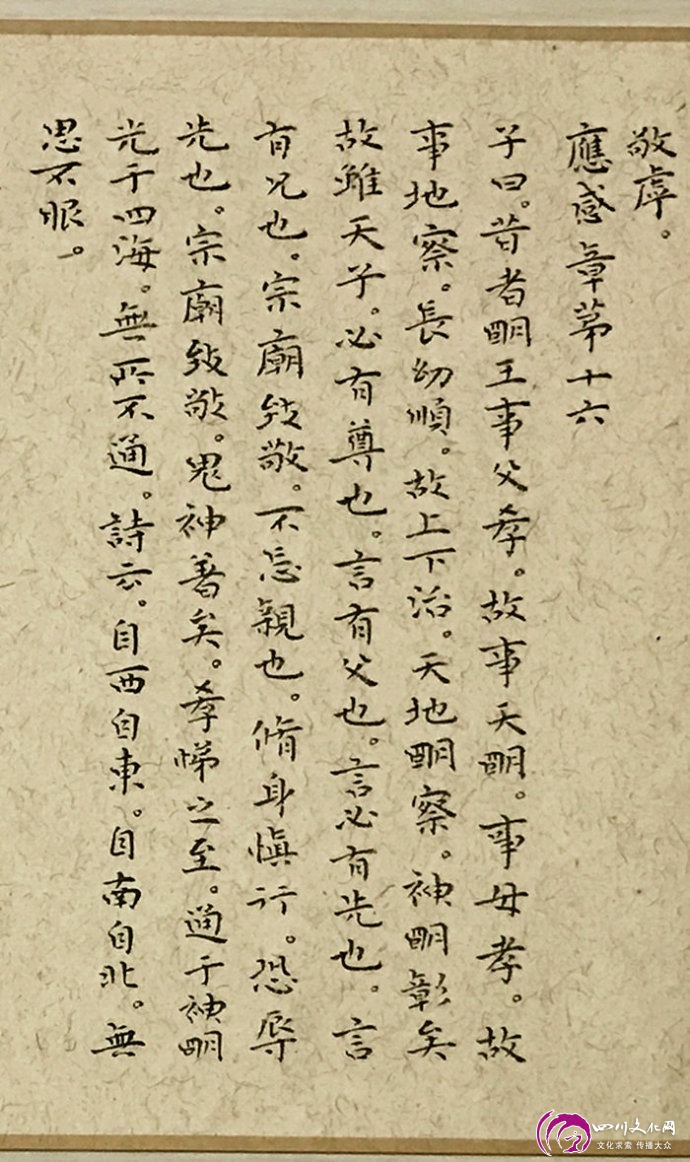 敬虖。
應感章苐十六
子曰。昔者明王事父孝。故事天明。事母孝。故
事地察。長幼順。故上下治。天地明察。神明彰矣
故雖天子。必有尊也。言有父也。言必有先也。言
有兄也。宗廟致敬。不忘親也。脩身慎行。恐辱
先也。宗廟致敬。鬼神著矣。孝悌之至。通于神明
光于四海。無所不通。詩云。自西自東。自南自北。無
思不服。
四川文化网
文化求索 传播大众